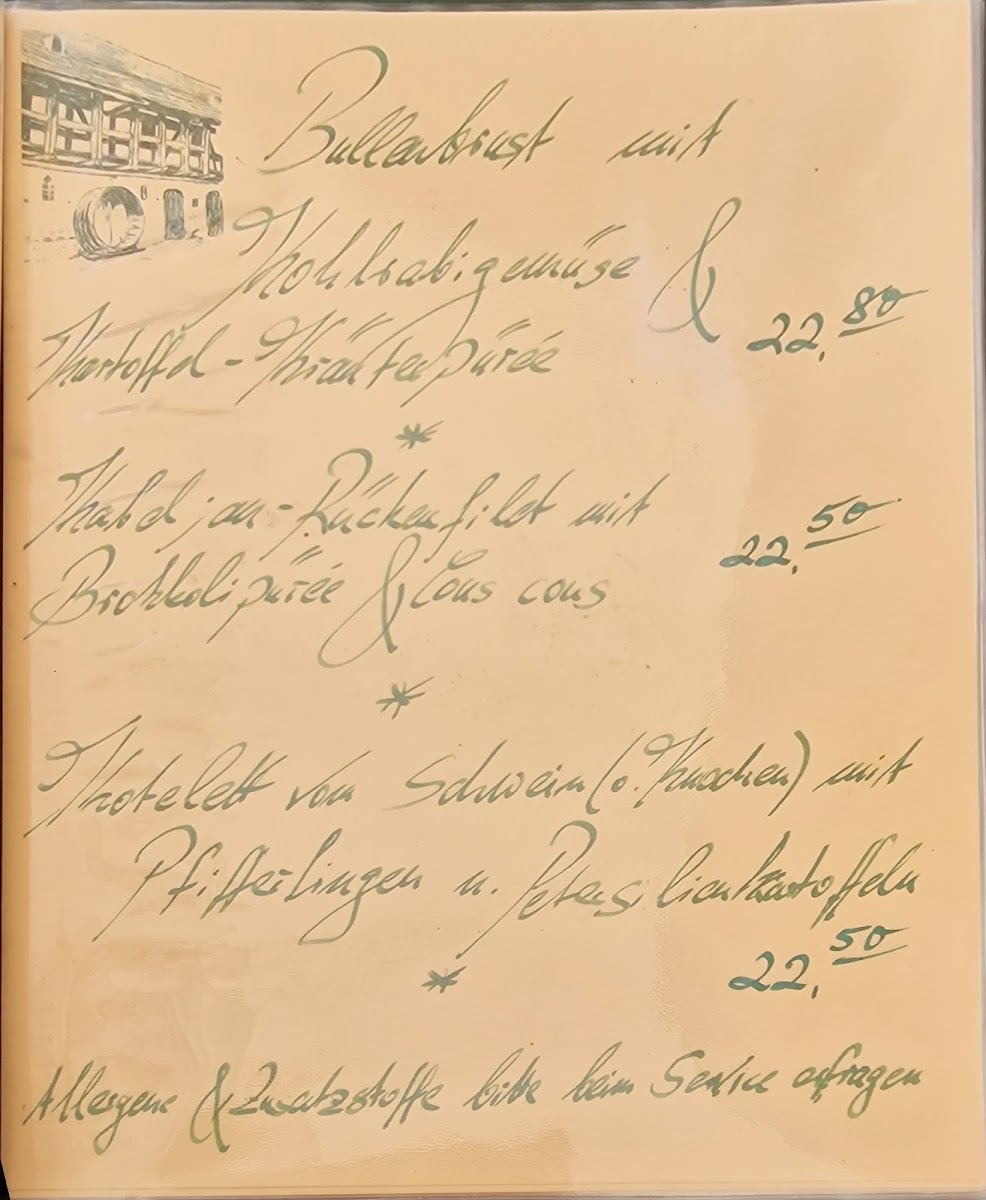 Bullenbrust mit
Kohlrabigemüse &
Kartoffel-Kräuterpüree 22,80
*
Kabeljau-Rückenfilet mit
Brokkolipüree & Cous cous 22,50
*
Kotelett vom Schwein (o. Knochen) mit
Pfifferlingen u. Petersilienkartoffeln
22,50
*
Allergene & Zusatzstoffe bitte beim Service erfragen